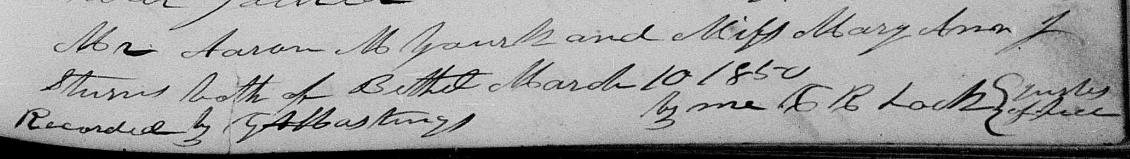 Mr Aaron M Yourk and Miss Mary Ann J
Sturns both of Bethel March 10 1850
by me R Lock Justes of Peace
Recorded by Hastings